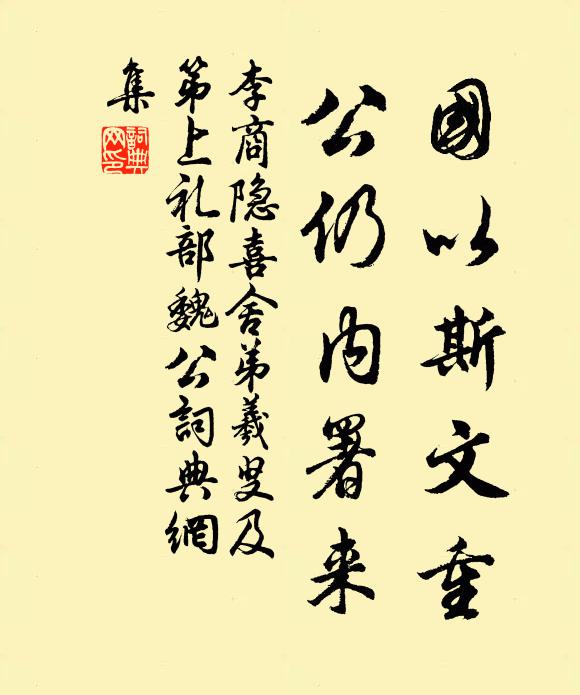 國以斯文重
公仍内署来
李商隐喜舍弟羲叟及
第上礼部魏公詞典網
集
詞典网印